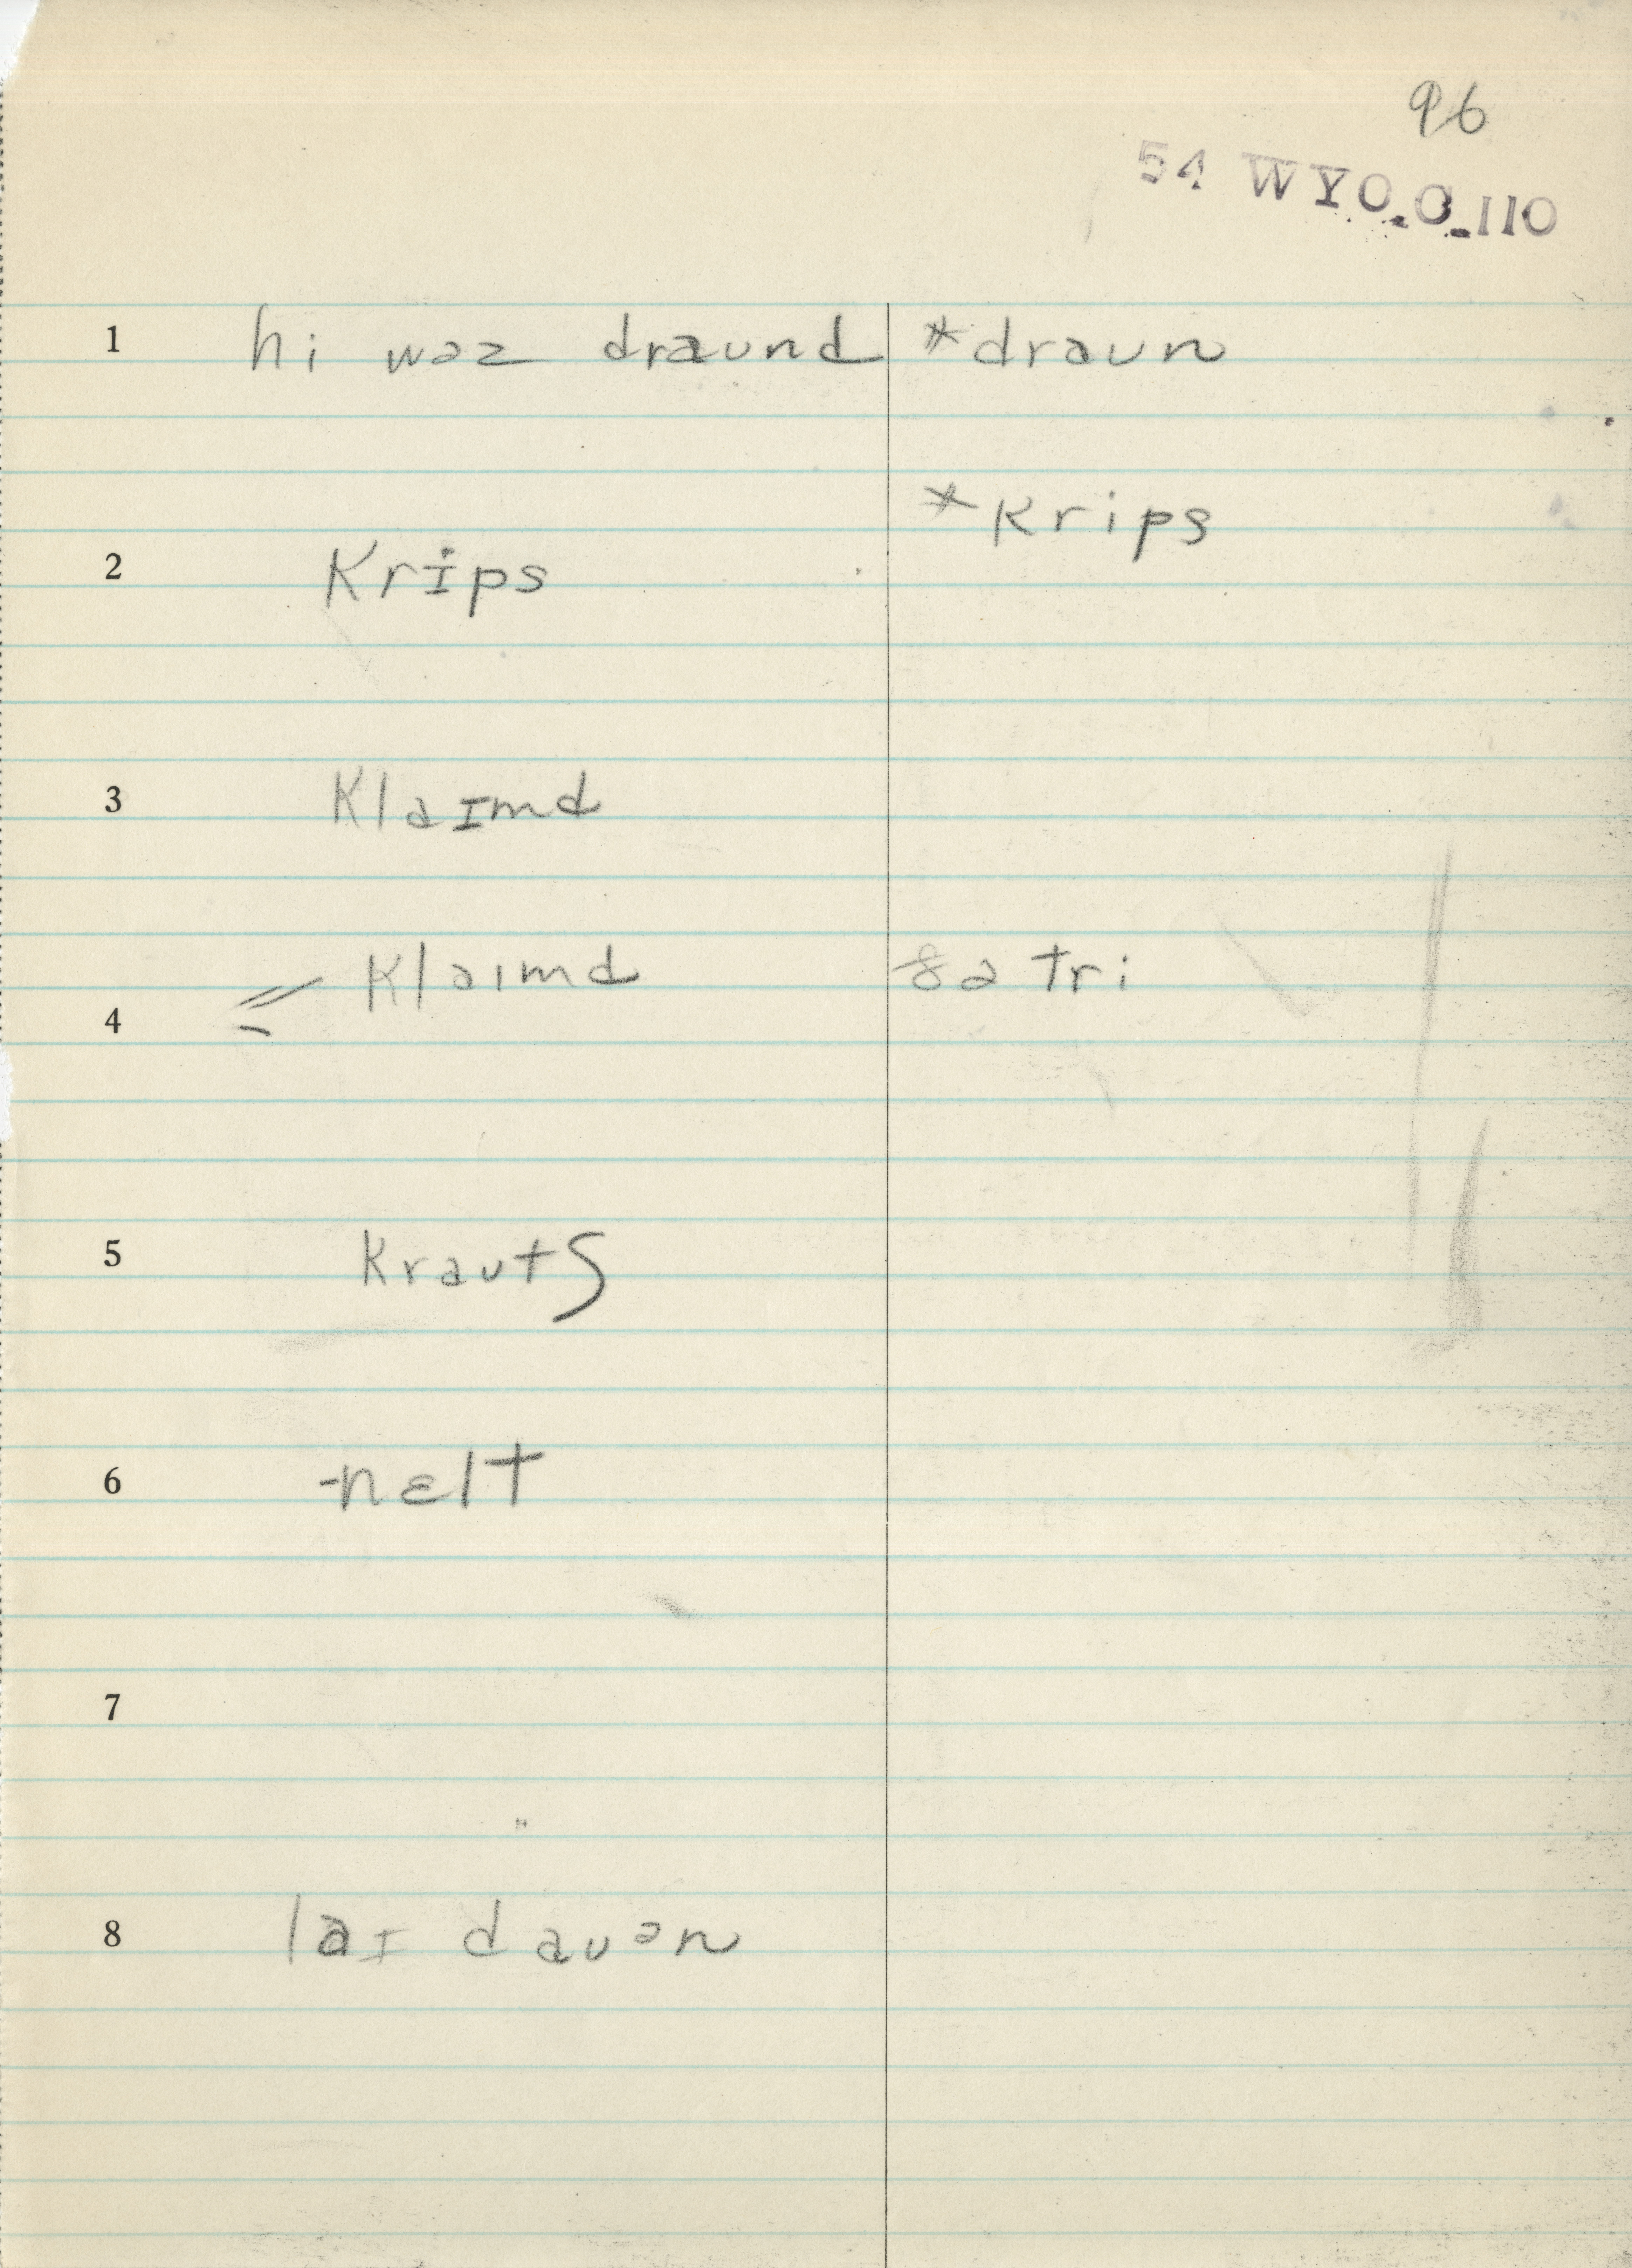 96
54 WYO.C.110
1 hi wəz draund *draun
*krips
2 krɨps
3 klaɪmd
4 klaɪmd ðə tri
5 krautʃ
6 -nɛlt
7
8 laɪ dauən